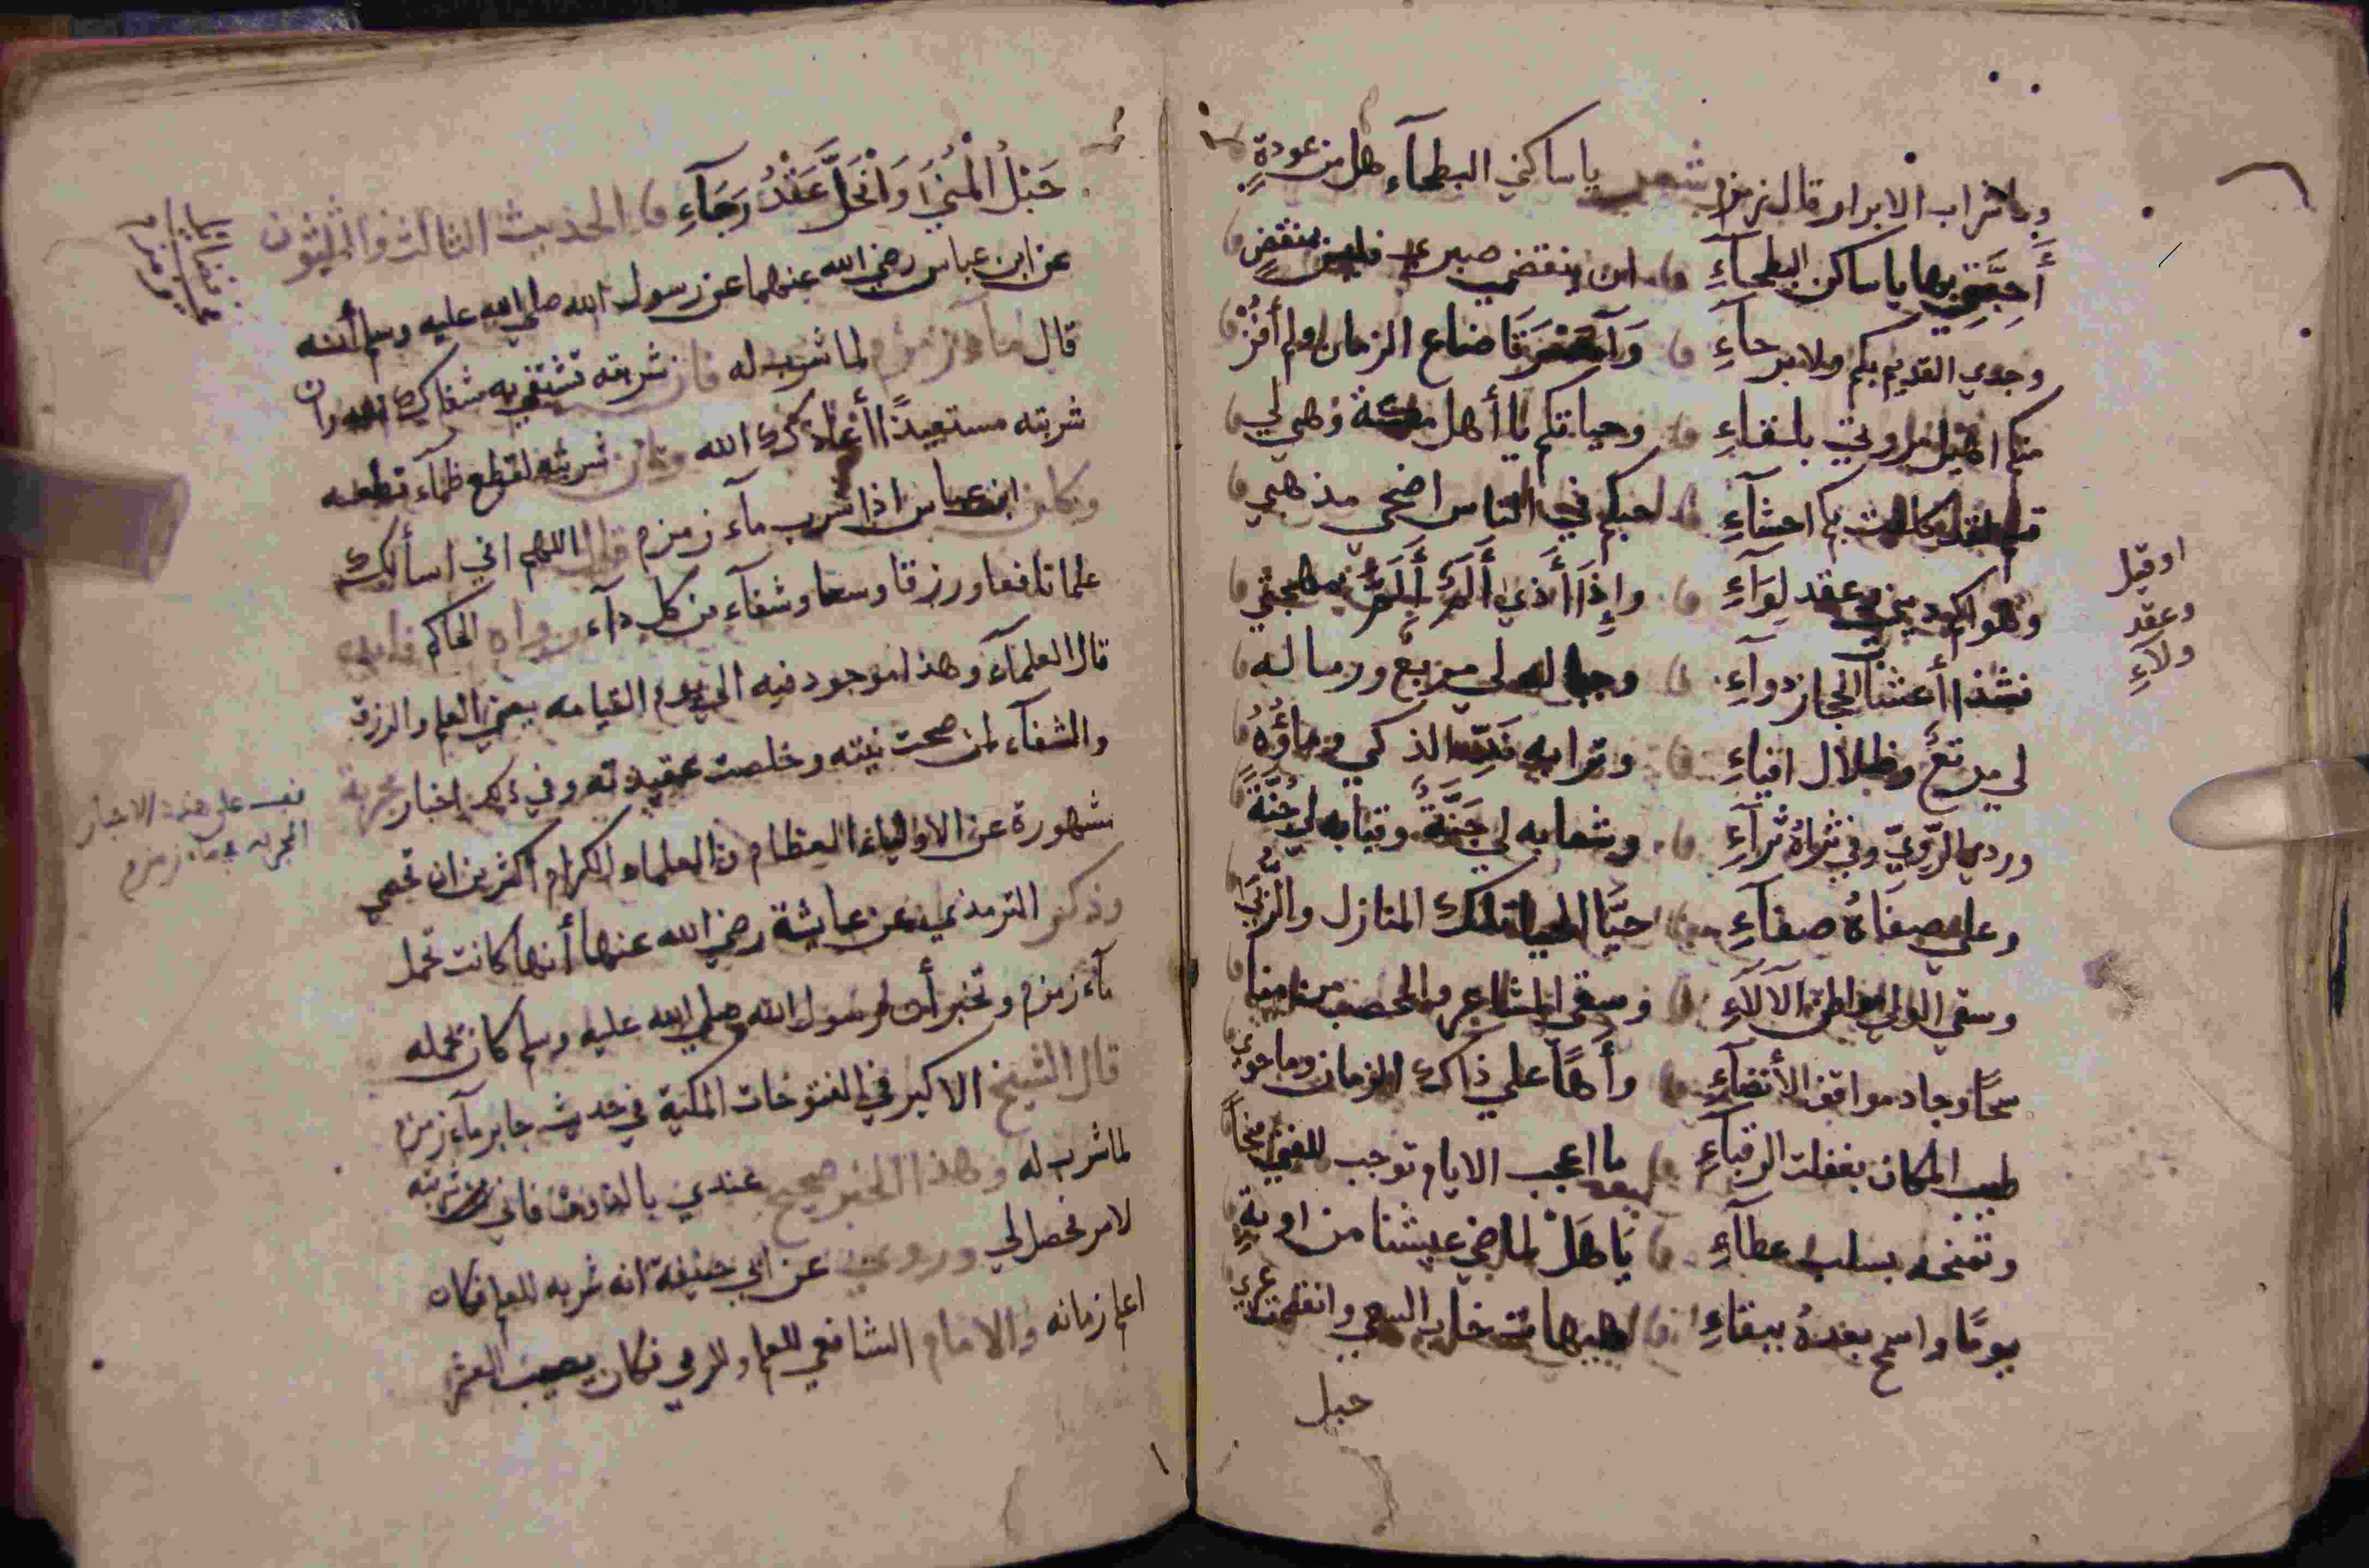 وما شراب الابرار قال زمزم شعر ياساكني البطحآء هل من عودةٍ
أحيَى بها ياساكن البطحآءِ ان ينقضي صبري فليس بمنقضٍ
وجدي القديم بكم ولا برحآءِ وَآحسْرَتَا ضاع الزمان ولم أفُزْ
منكم اهيل مروتي بلقاءِ وحياتكم يا أهل مكة وهي لي
قسم لقد كلفت بكم احشآءِ حبكم في الناس اضحى مذهبي
وهواكم ديني وعقد لِوَآءِ وإِذَا أذي أَلَمٍ أَلَمَّ بمهجتي
فشذا أعشاب الحجاز دوآءِ وجباله لي مربع ورماله
لي مرتعٌ وظلال افياءِ وترابه نَدِّي الذكي وماؤُهُ
وردي الرّويّ وفي ثراهُ ثرآءِ وشعابه لي جَنَّةٌ وقبابه لي جُنَّةٌ
وعلى صفاهُ صفآءِ حيَّا الحيا تلك المنازل والرُّبَى
وسقى الولي مواطن الآلآءِ وسقى المشاعر والمحصب من منا
سحًّا وجاد مواقف الأنضآءِ واهًا على ذاك الزمان وما حوى
طيب المكان بغفلت الرقباءِ ما اعجب الايام توجب للفتى منحًا
وتمنحه بسلب عطآءِ يَا هَلْ لماضي عيشنا من اوبةٍ
يومًا واسمح بعدهُ ببقاءِ هيهات خاب السعي وانفصمت عرى
حبل
او قيل
وعقد
ولآءِ
حَبْلُ الْمُنَىَ وَانْحَلَّ عَقْدُ رَجَآءِ الحديث الثالث والثلثون
عن ابن عباس رضي الله عنهما عن رسول الله صلى الله عليه وسلم أنه
قال مآء زمزم لما شرب له فان شربته تشتفي به شفاك الله وان
شربته مستعيذًا أعاذك الله وان شربته لقطع ظمآء قطعه
وكان ابن عباس اذا شرب مآء زمزم قال اللهم اني اسألك
علما نافعا ورزقا وسعا وشفآء من كل دآء رواه الحاكم فايده
قال العلمآء وهذا موجود فيه الى يوم القيامه يعني العلم والرزق
والشفآء لمن صحت نيته وخلصت عقيدته وفي ذلك اخبار مجربة
مشهورة عن الاولياء العظام والعلماء الكرام اكثر من ان تحصى
وذكر الترمذي عن عايشة رضي الله عنها أنها كانت تحمل
مآء زمزم وتخبر أن رسول الله صلى الله عليه وسلم كان يحمله
قال الشيخ الاكبر في الفتوحات المكية في حديث جابر مآء زمزم
لما شرب له وهذا الخبر صحيح عندي بالذوق فاني شربته
لامر فحصل لي وروي عن ابي حنيفة انه شربه للعلم فكان
اعلم زمانه والامام الشافعي للعلم والرمي فكان يصيب العشر
على هذه الاخبار
المجربه في مآء زمزم